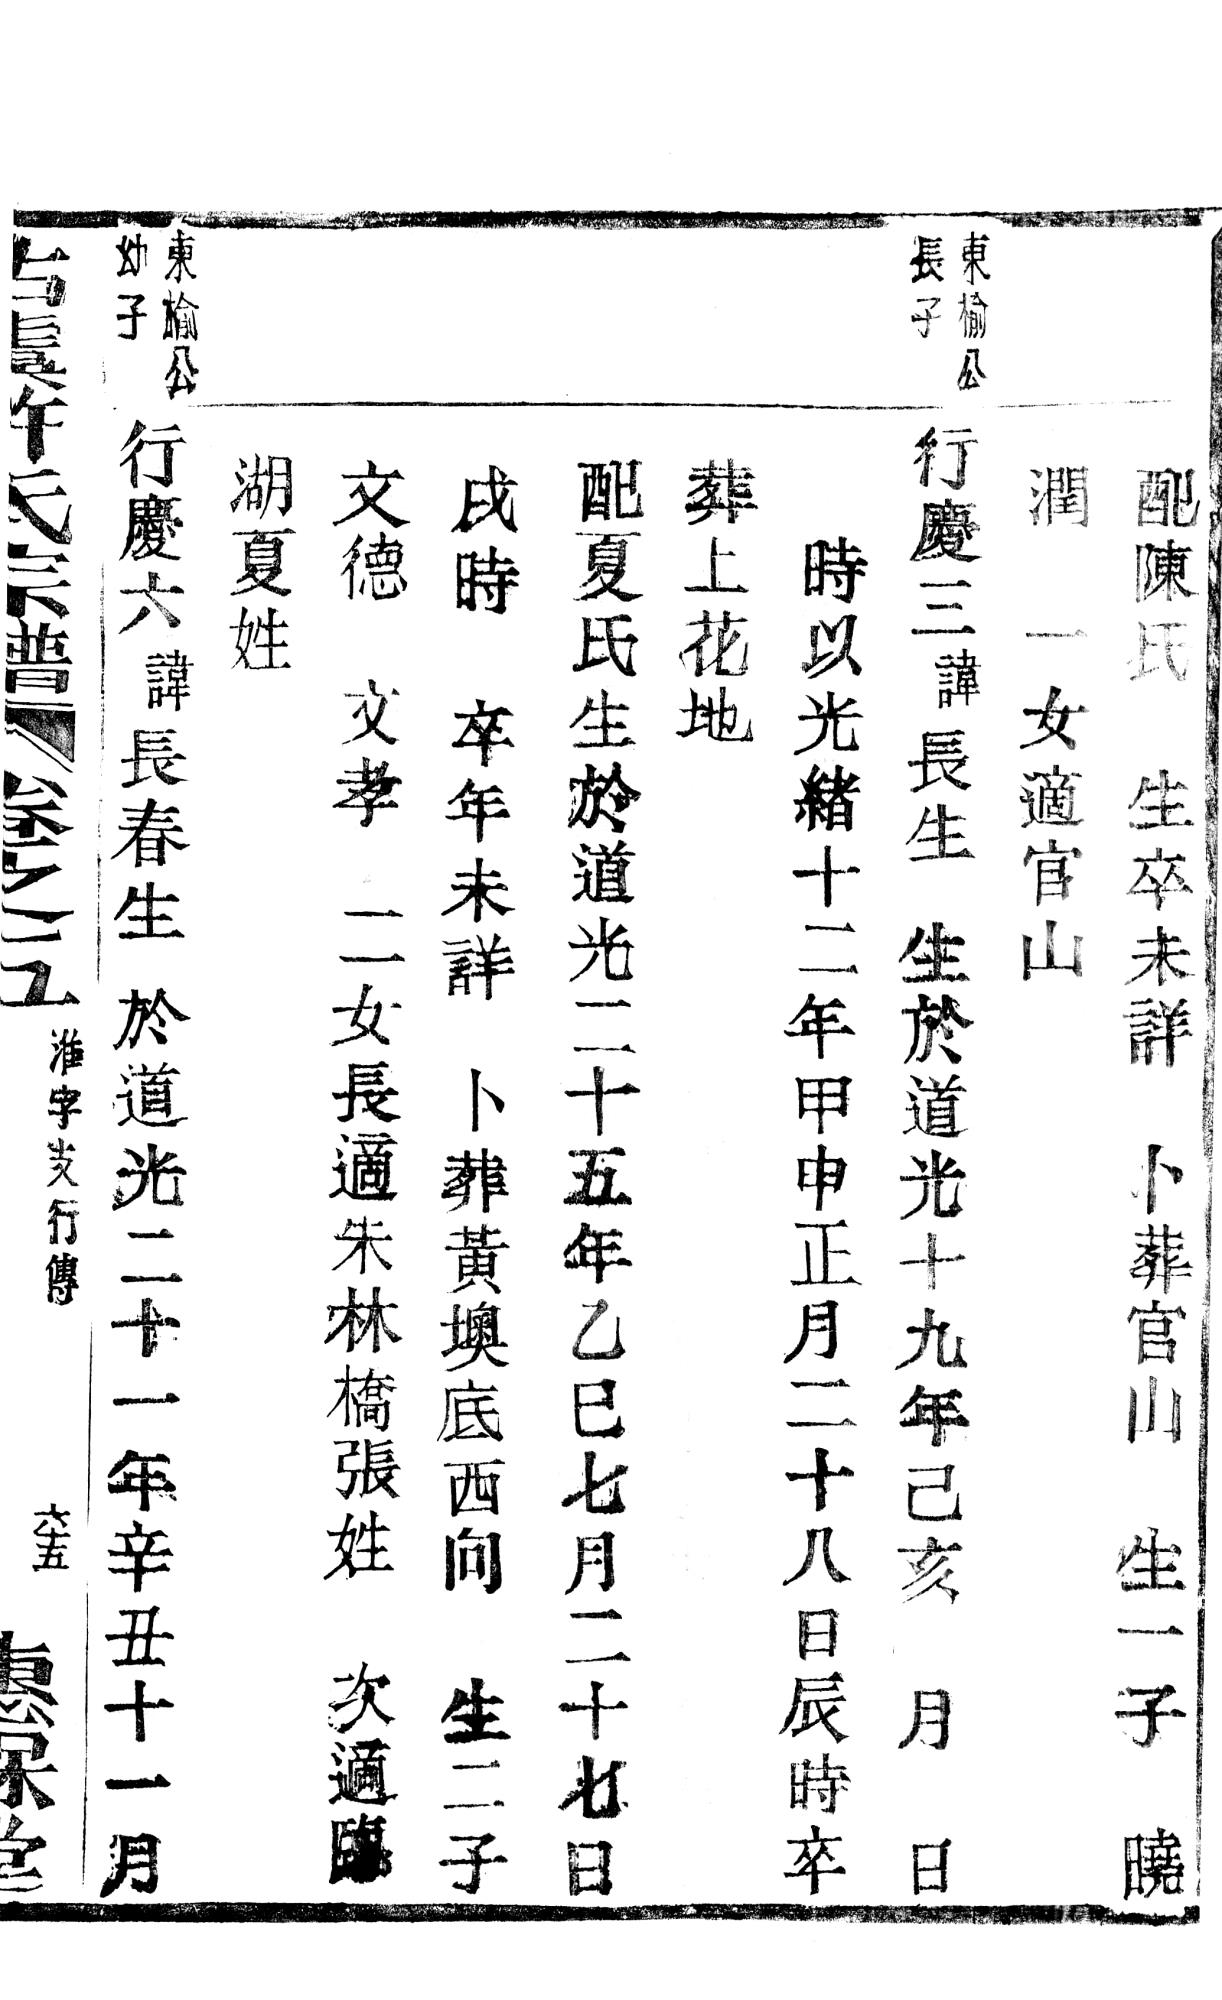 配陳氏　生卒未詳　卜葬官山　生一子　曉
潤　一女適官山
東榆公
長子
行慶三諱長生　生於道光十九年己亥　月　日
時以光緒十二年甲申正月二十八日辰時卒
葬上花地
配夏氏生於道光二十五年乙巳七月二十七日
戌時　卒年未詳　卜葬黃墺底西向　生二子
文德　文孝　二女長適朱林橋張姓　次適臨
湖夏姓
東榆公
幼子
行慶六諱長春生　於道光二十一年辛丑十一月
古虞許氏宗譜　卷之二五　淮字支行傳　六十五　惠保堂